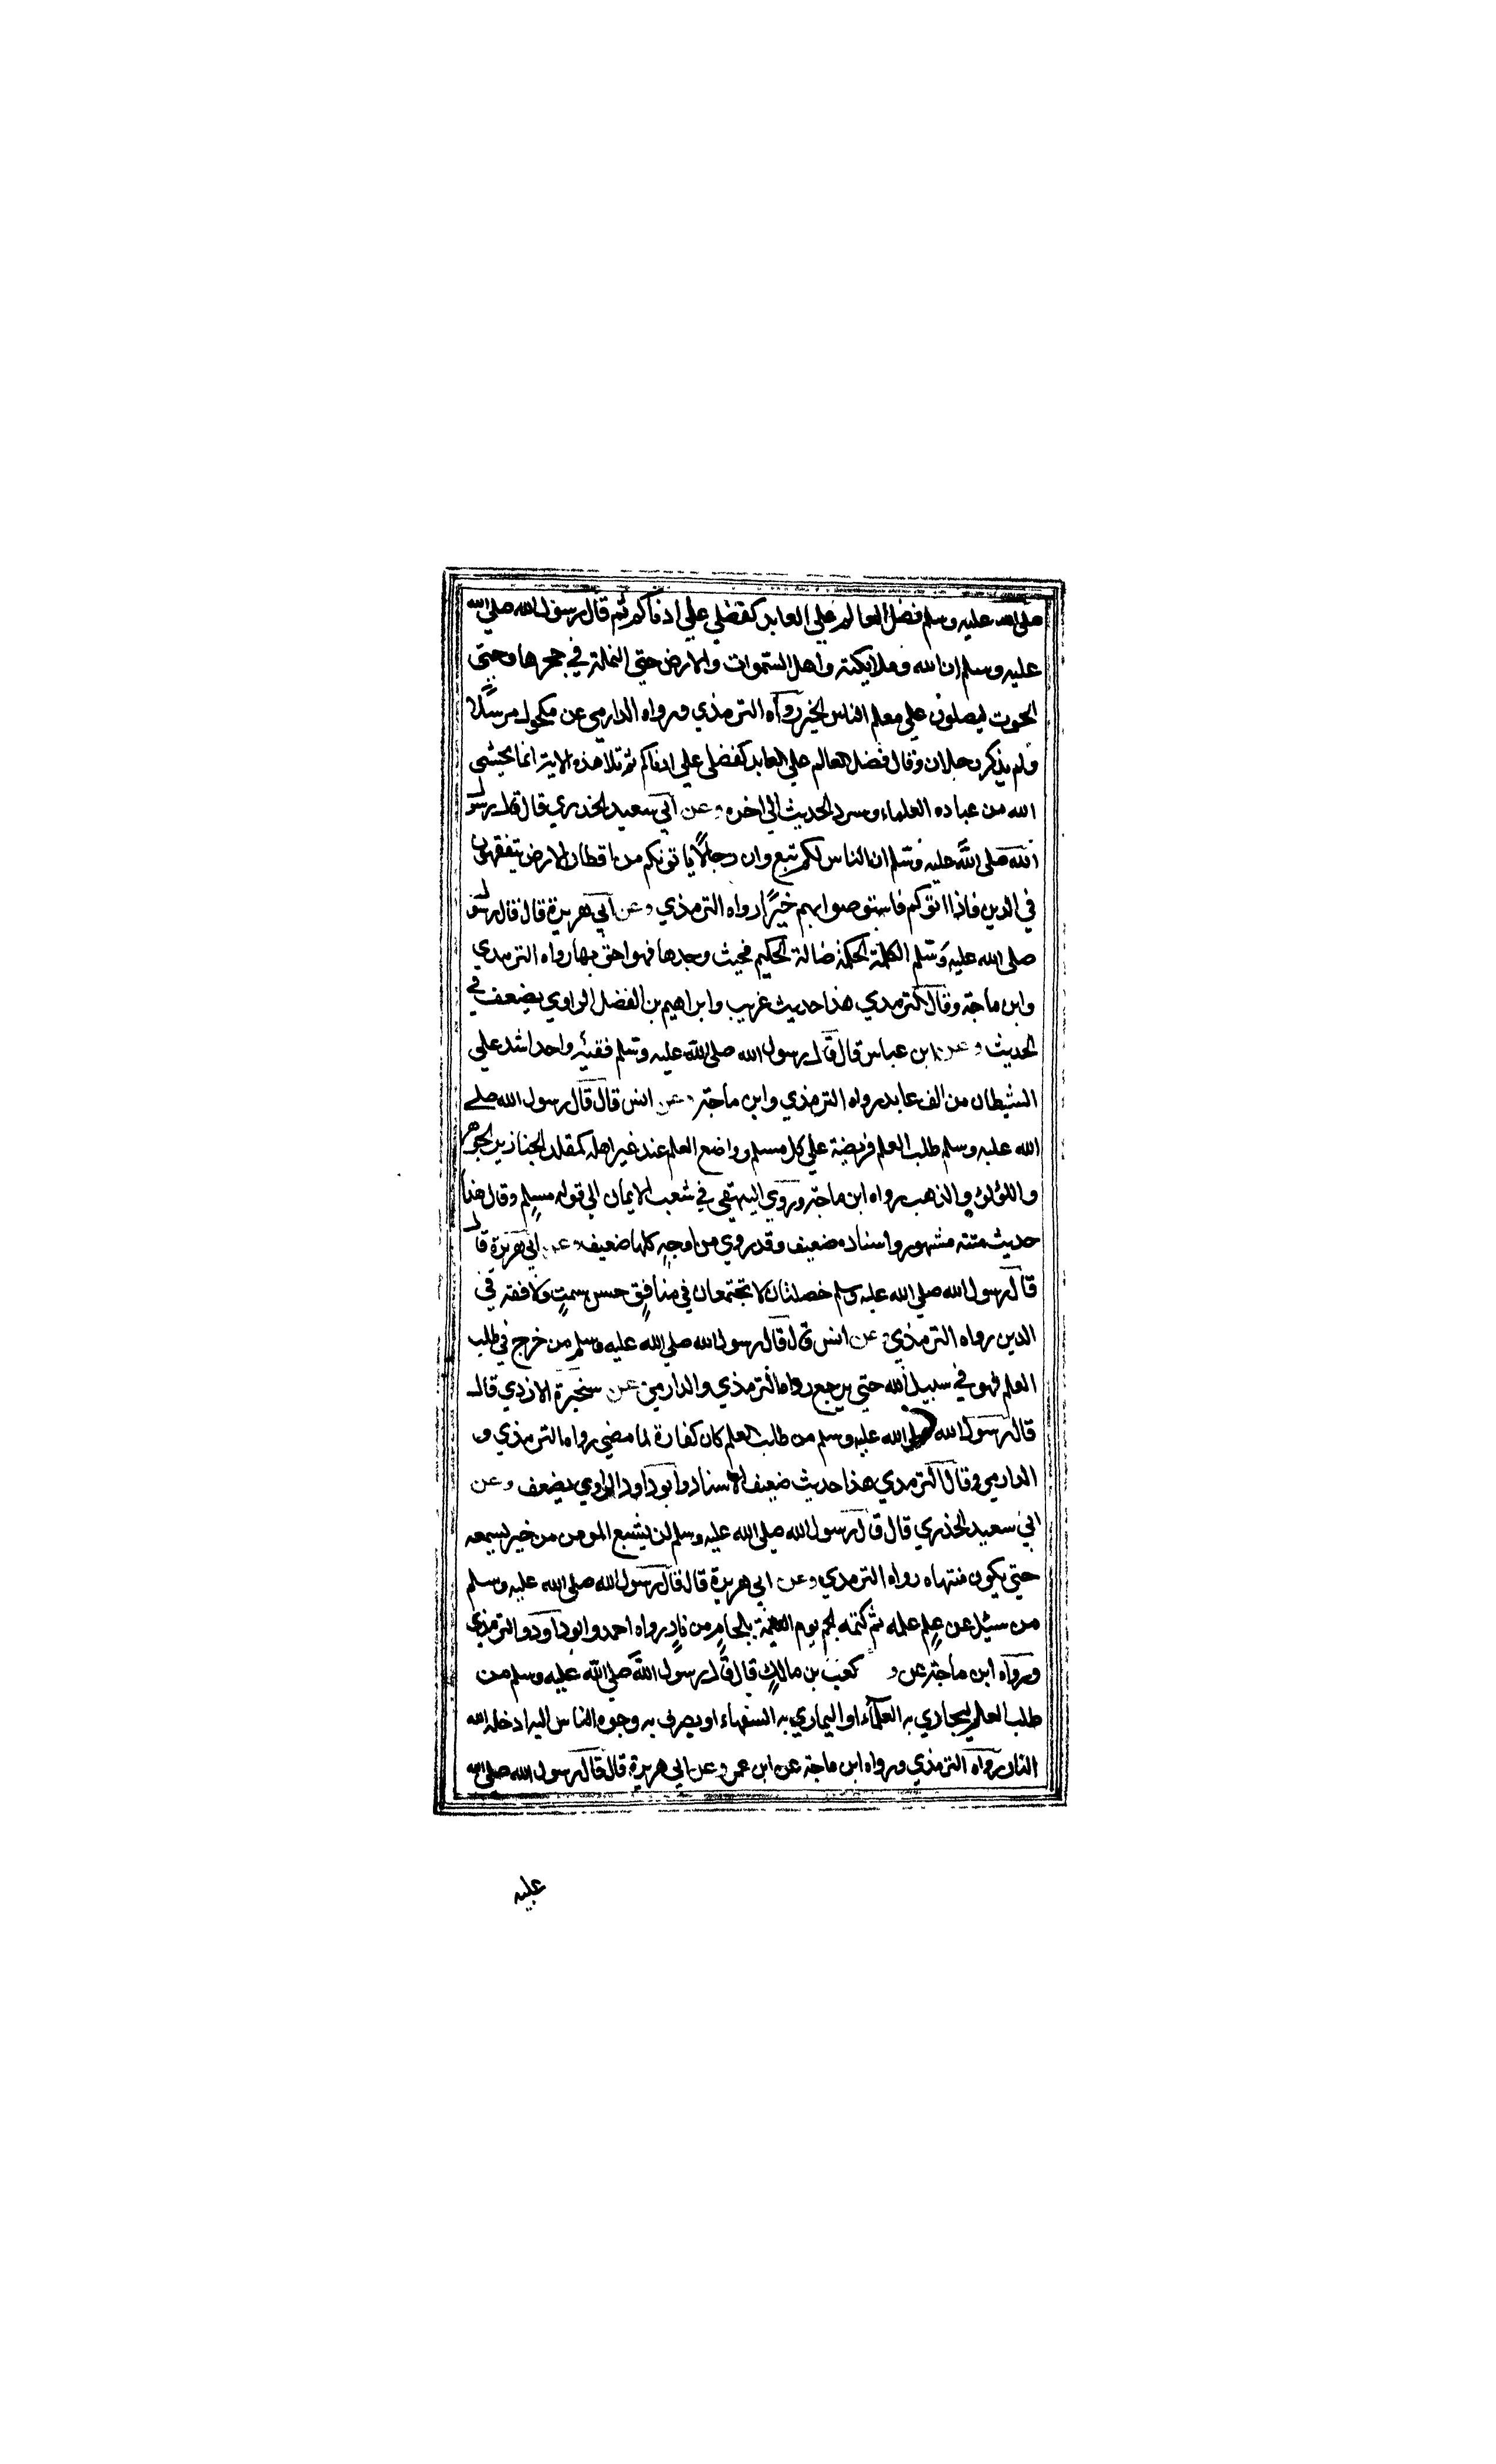 صلى الله عليه وسلم فضل العالم علي العابد كفضلي علي ادناكم ثم قال رسول الله صلي الله
عليه وسلم ان الله وملايكته واهل السموات والارض حتي النملة في جحرها وحتي
الحوت ليصلون علي معلم الناس الخير رواه الترمذي ورواه الدارمي عن مكحول مرسلًا
ولم يذكر رجلان وقال فضل العالم علي العابد كفضلي علي ادناكم ثم تلا هذه الاية انما يخشي
الله من عباده العلماء وسرد الحديث الي اخره وعن ابي سعيد الخدري قال قال رسول
الله صلى الله عليه وسلم ان الناس لكم تبع وان رجالًا ياتونكم من اقطار الارض يتفقهون
في الدين فاذا اتوكم فاستوصوا بهم خيرًا رواه الترمذي وعن ابي هريرة قال قال رسول
صلى الله عليه وسلم الكلمة الحكمة ضالة الحكيم فحيث وجدها فهو احق بها رواه الترمدي
وابن ماجة وقال الترمدي هذا حديث غريب وابراهيم بن الفضل الراوي يضعف في
الحديث وعن ابن عباس قال قال رسول الله صلى الله عليه وسلم فقيه واحد اشد علي
الشيطان من الف عابد رواه الترمذي وابن ماجة وعن انس قال قال رسول الله صلے
الله عليه وسلم طلب العلم فريضة علي كل مسلم وواضع العلم عند غير اهله كمقلد الخنازير الجوهر
واللؤلؤ والذهب رواه ابن ماجة وروي البيهقي في شعب الايمان الي قوله مسلمٍ وقال هذا
حديث متنه مشهور واسناده ضعيف وقد روي من اوجهٍ كلها ضعيف وعن ابي هريرة قال
قال رسول الله صلي الله عليه وسلم خصلتان لا تجتمعان في منافقٍ حسن سمتٍ ولا فقه في
الدين رواه الترمذي وعن انس قال قال رسول الله صلي الله عليه وسلم من خرج في طلب
العلم فهو في سبيل الله حتي يرجع رواه الترمذي والدارمي وعن سخبرة الازدي قال
قال رسول الله صلي الله عليه وسلم من طلب العلم كان كفارة لما مضي رواه الترمذي و
الدارمي وقال الترمدي هذا حديث ضعيف الاسناد وابو داود الراوي يضعف وعن
ابي سعيد الخذري قال قال رسول الله صلي الله عليه وسلم لن يشبع المومن من خير يسمعه
حتي يكون منتهاه رواه الترمدي وعن ابي هريرة قال قال رسول الله صلى الله عليه وسلم
من سئل عن علم علمه ثم كتمه لجم يوم القيمة بلجامٍ من نارٍ رواه احمد وابو داود والترمذي
ورواه ابن ماجة عن و كعب بن مالكٍ قال قال رسول الله صلي الله عليه وسلم من
طلب العلم ليجاري به العلمآء او اليماري به السفهاء او يصرف به وجوه الناس اليه ادخله الله
النار رواه الترمذي ورواه ابن ماجة عن ابن عمر وعن ابي هريرة قال قال رسول الله صلي الله
عليه